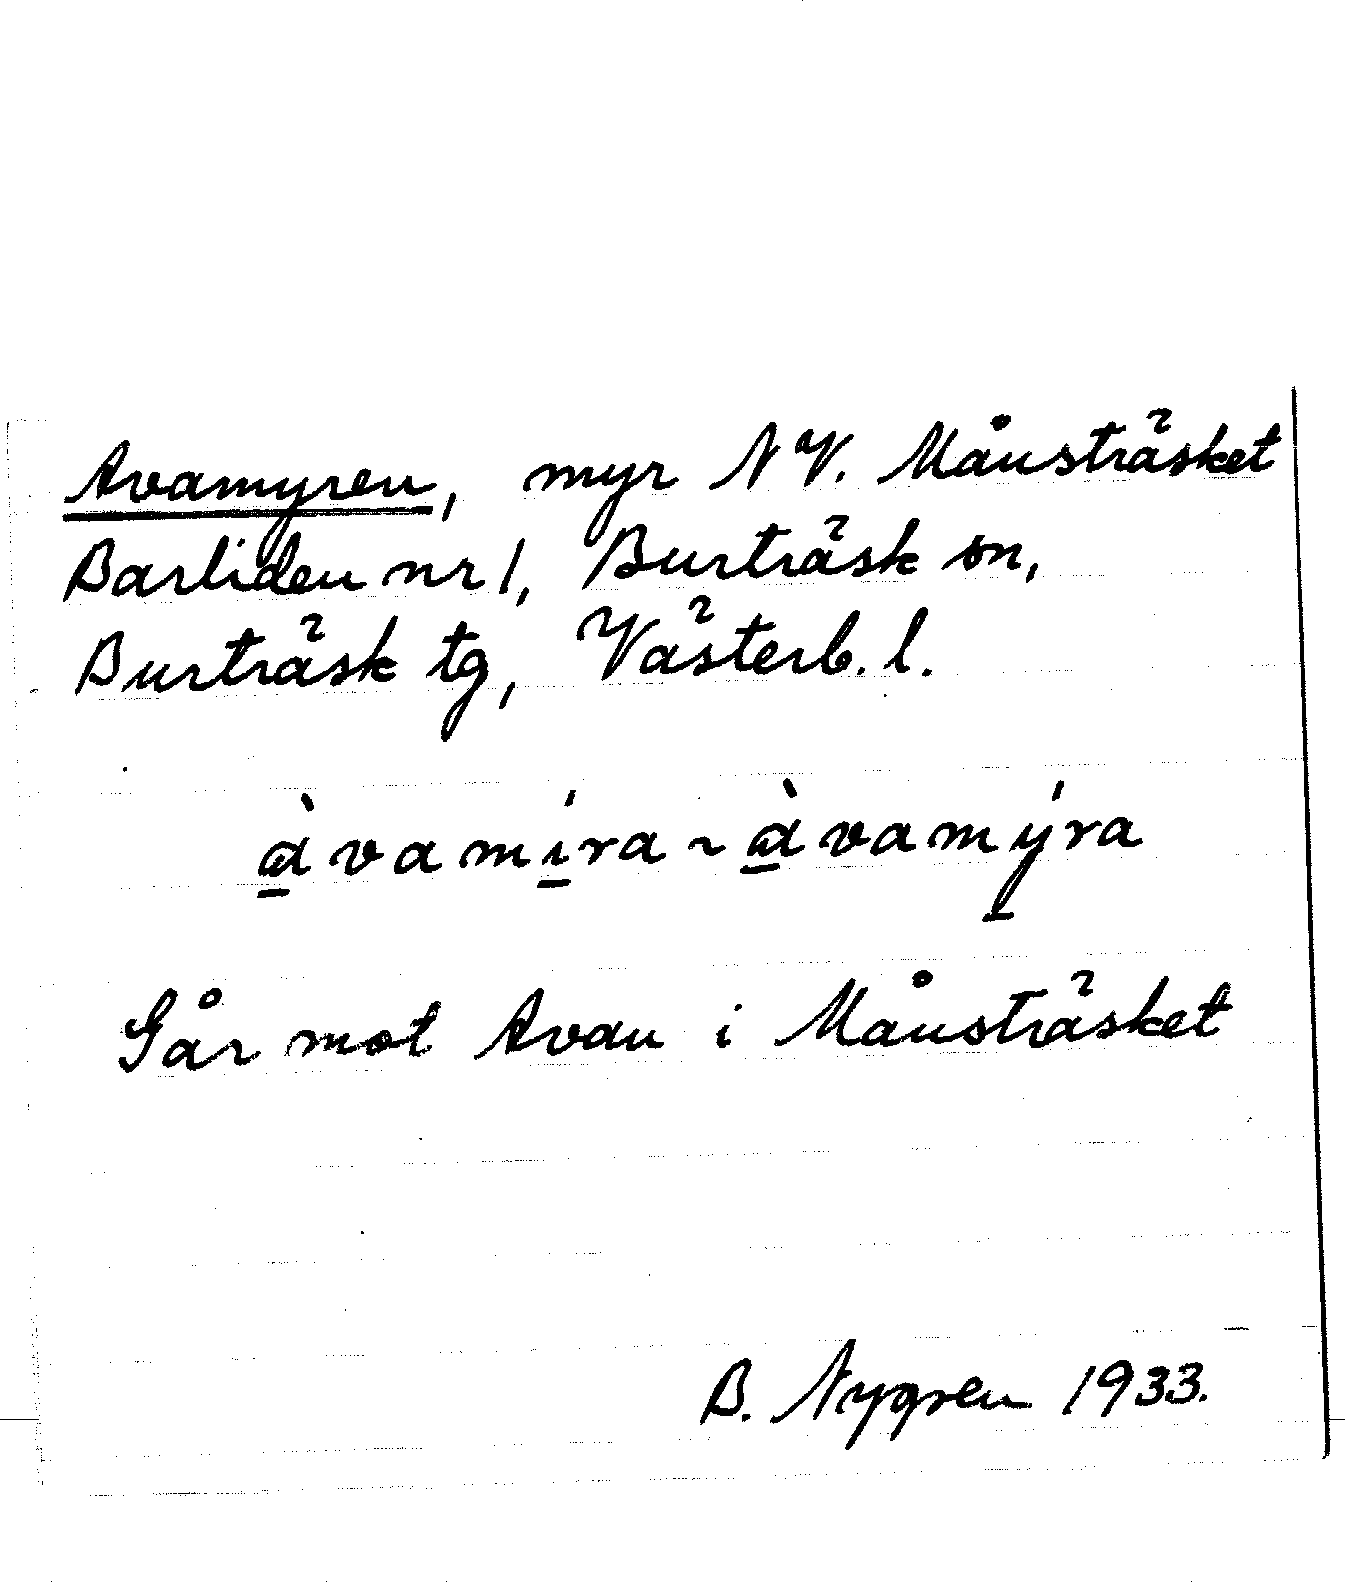 Avamyren, myr NV. Månsträsket
Barliden nr 1, Burträsk sn,
Burträsk tg, Västerb. l.
à̱vamí̱ra ~ à̱vamý̱ra
Går mot Avan i Månsträsket
B. Nygren 1933.